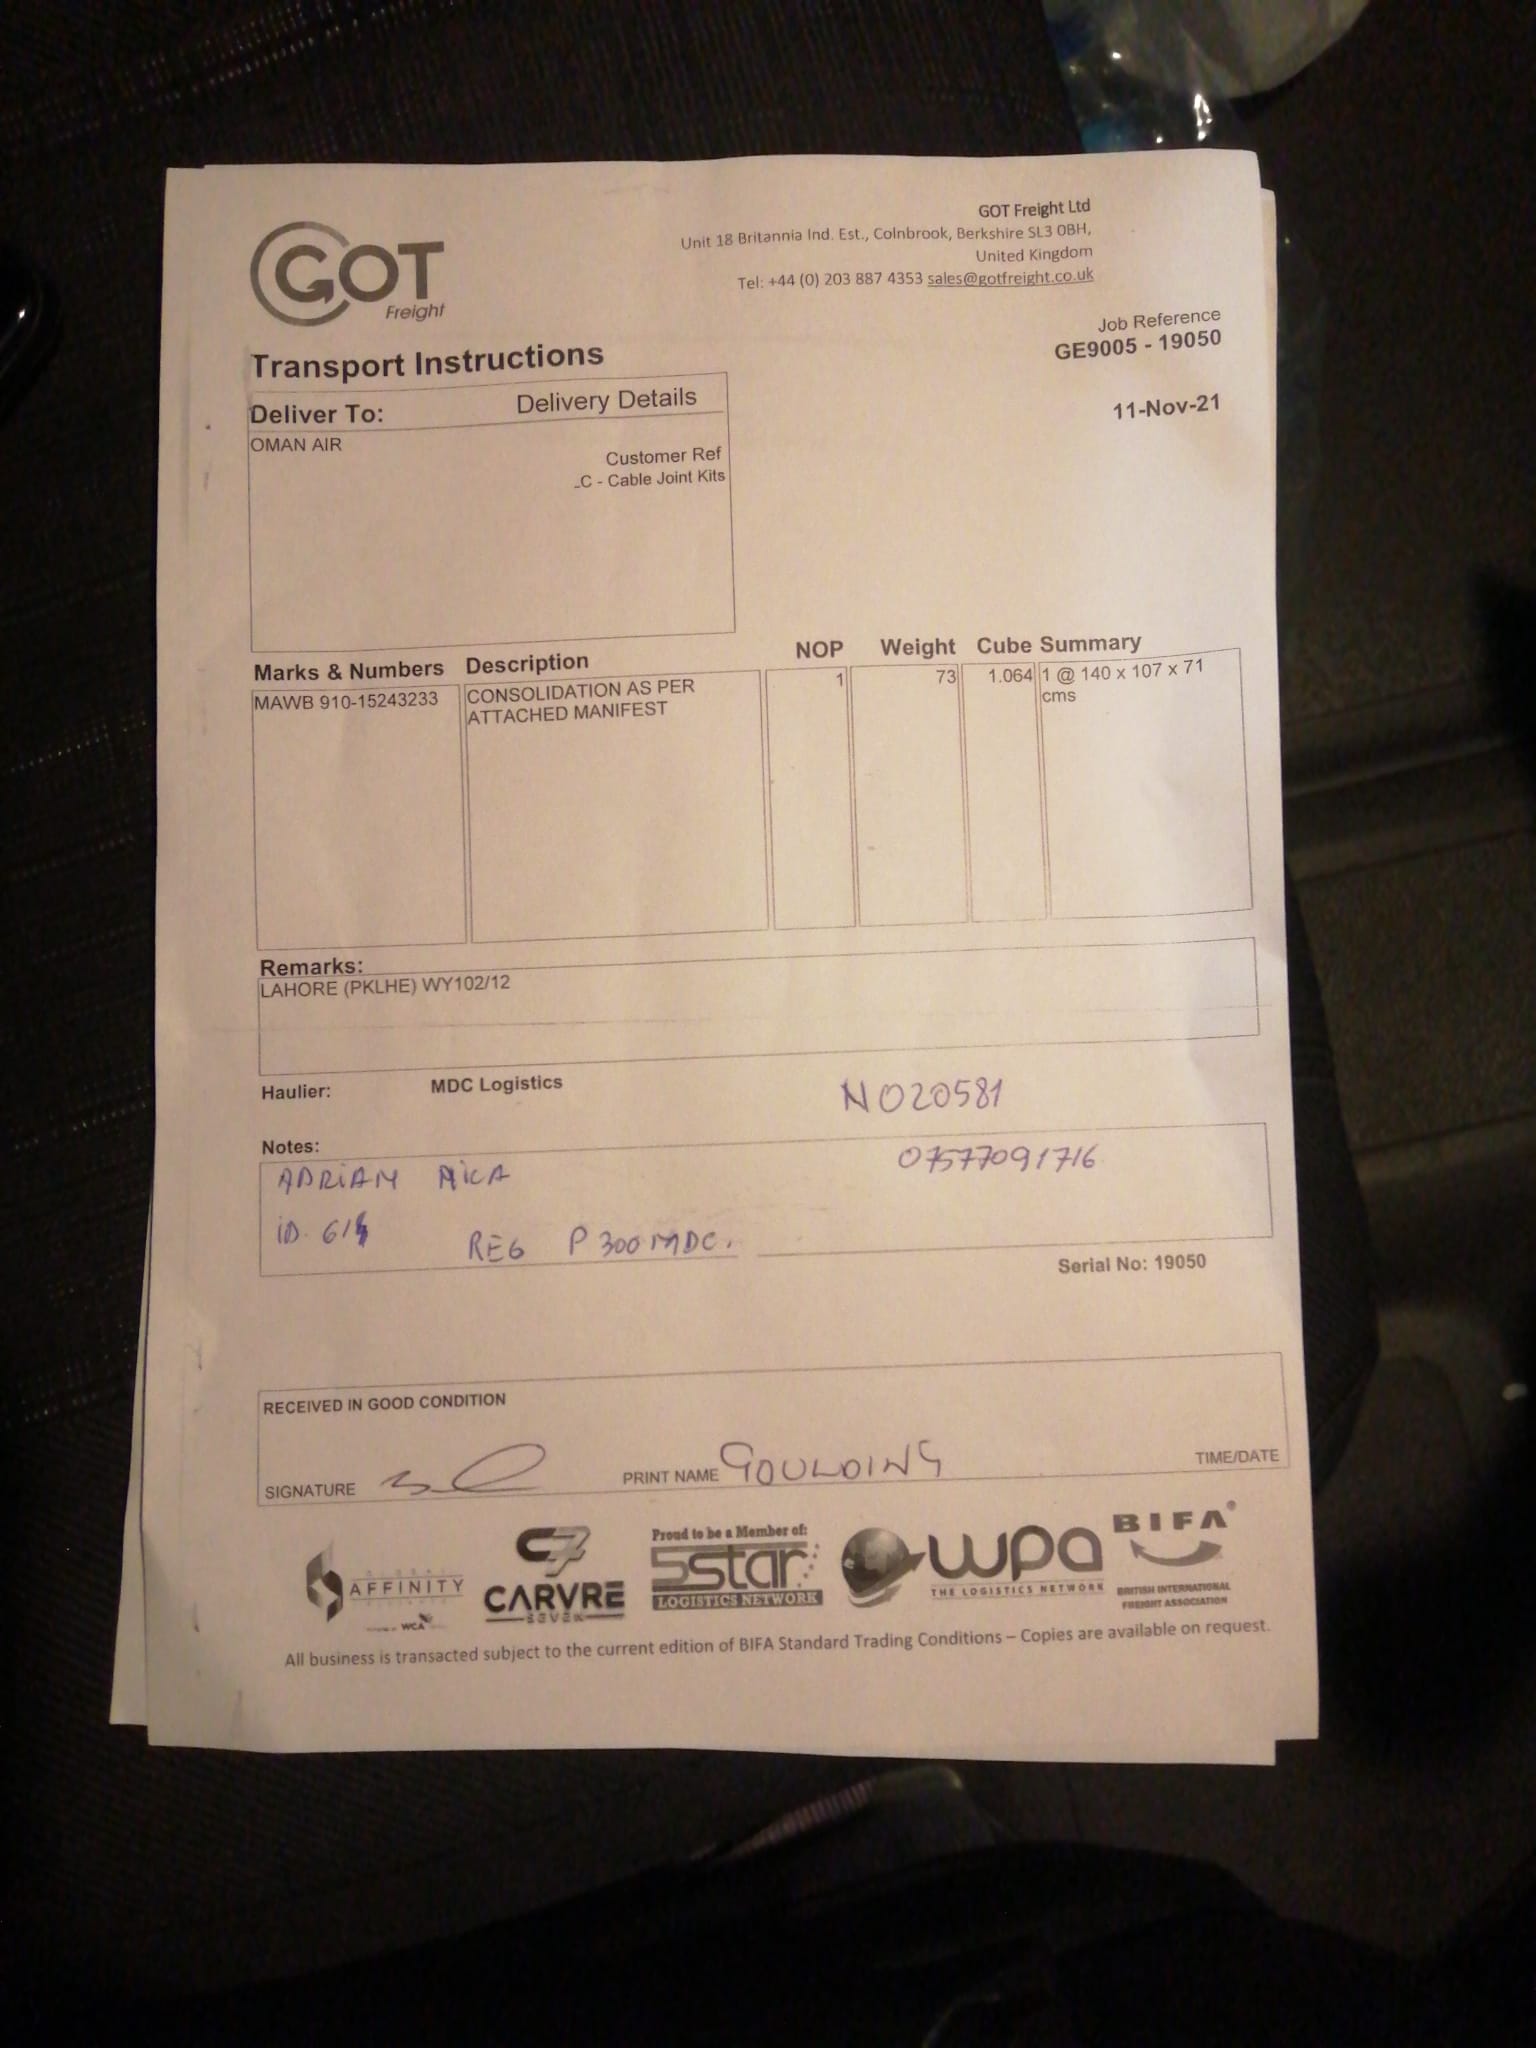 GOT
Freight
GOT Freight Ltd
Unit 18 Britannia Ind. Est., Colnbrook, Berkshire SL3 0BH,
United Kingdom
Tel: +44 (0) 203 887 4353 sales@gotfreight.co.uk
Job Reference
GE9005 - 19050
11-Nov-21
Transport Instructions
Deliver To: Delivery Details
OMAN AIR
Customer Ref
_C - Cable Joint Kits
Marks & Numbers Description NOP Weight Cube Summary
MAWB 910-15243233 CONSOLIDATION AS PER 1 73 1.064 1 @ 140 x 107 x 71
ATTACHED MANIFEST cms
Remarks:
LAHORE (PKLHE) WY102/12
Haulier: MDC Logistics NO20581
Notes: 07577091716
ADRIAN
ID REG P300MDC.
Serial No: 19050
RECEIVED IN GOOD CONDITION
SIGNATURE PRINT NAME GOULDING TIME/DATE
AFFINITY
WCA
C7
CARVRE
SEVEN
Proud to be a Member of:
5star
LOGISTICS NETWORK
wpa
THE LOGISTICS NETWORK
BIFA
BRITISH INTERNATIONAL
FREIGHT ASSOCIATION
All business is transacted subject to the current edition of BIFA Standard Trading Conditions – Copies are available on request.